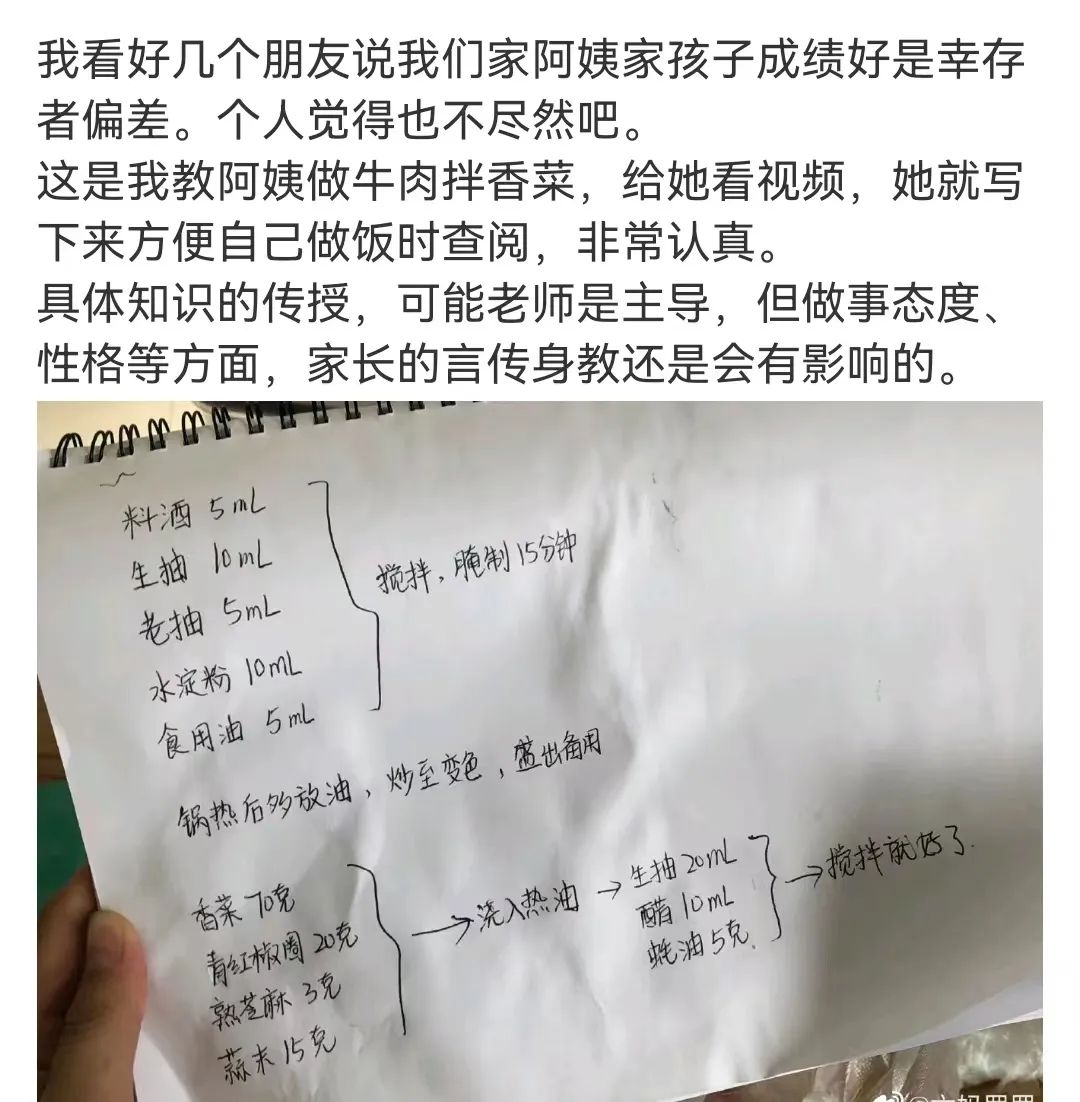 我看好几个朋友说我们家阿姨家孩子成绩好是幸存
者偏差。个人觉得也不尽然吧。
这是我教阿姨做牛肉拌香菜，给她看视频，她就写
下来方便自己做饭时查阅，非常认真。
具体知识的传授，可能老师是主导，但做事态度、
性格等方面，家长的言传身教还是会有影响的。
料酒 5mL
生抽 10mL
老抽 5mL
水淀粉 10mL
食用油 5mL
搅拌，腌制15分钟
锅热后多放油，炒至变色，盛出备用
香菜 70克
青红椒圈 20克
熟芝麻 3克
蒜末 15克
→浇入热油→
生抽 20mL
醋 10mL
蚝油 5克
→搅拌就好了.